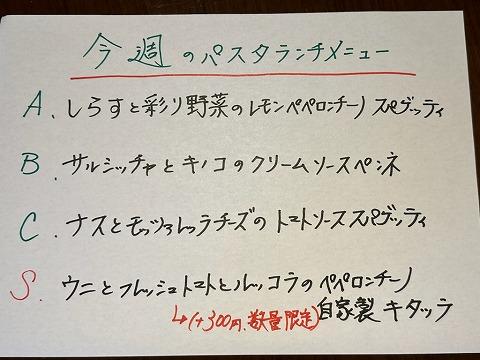 今週のパスタランチメニュー
A. しらすと彩り野菜のレモンペペロンチーノ スパゲッティ
B. サルシッチャとキノコのクリームソースペンネ
C. ナスとモッツァレッラチーズのトマトソーススパゲッティ
S. ウニとフレッシュトマトとルッコラのペペロンチーノ
自家製キタッラ
↳(+300円、数量限定)